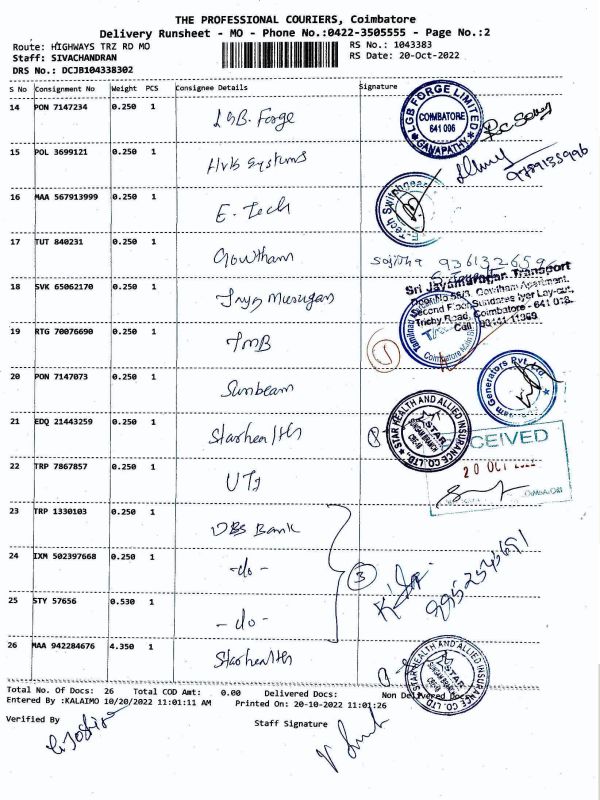 THE PROFESSIONAL COURIERS, Coimbatore
Delivery Runsheet - MO - Phone No.:0422-3505555 - Page No.:2
Route: HIGHWAYS TRZ RD MO
RS No.: 1043383
Staff: SIVACHANDRAN
RS Date: 20-Oct-2022
DRS No.: DCJB104338302
S No Consignment No Weight PCS Consignee Details Signature
14 PON 7147234 0.250 1 LGB. Forge
LGB FORGE LIMITED COIMBATORE 641 006 GANAPATHY
15 POL 3699121 0.250 1 Systems
9789135996
16 MAA 567913999 0.250 1 E. Tech
E-Tech Switchgear
17 TUT 840231 0.250 1 Gowtham
18 SVK 65062170 0.250 1 Jaya Murugan
Sri Jayamurugan Transport
Gowtham Apartment,
Second Floor, Iyer Lay-out,
Trichy Road, Coimbatore - 641 018.
19 RTG 70076690 0.250 1 TMB
20 PON 7147073 0.250 1 Sunbeam
Generators Pvt Ltd
21 EDQ 21443259 0.250 1 Starhealth
STAR HEALTH AND ALLIED INSURANCE CO. LTD. STAR
22 TRP 7867857 0.250 1 UTI
CEIVED
20 OCT
23 TRP 1330103 0.250 1 DBS Bank
24 IXM 502397668 0.250 1 -do-
3
25 STY 57656 0.530 1 -do-
26 MAA 942284676 4.350 1 Starhealth
STAR HEALTH AND ALLIED INSURANCE CO. LTD. STAR
Total No. Of Docs: 26 Total COD Amt: 0.00 Delivered Docs: Non Delivered Docs
Entered By :KALAIMO 10/20/2022 11:01:11 AM Printed On: 20-10-2022 11:01:26
Verified By Staff Signature